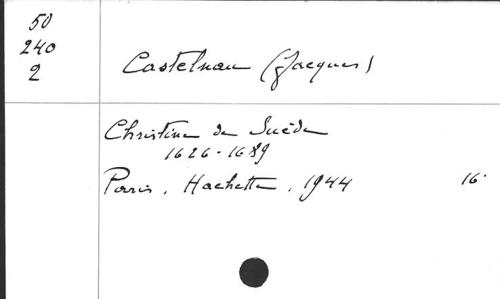 50
240
2
Castelnau (Jacques)
Christine de Suède
1626-1689
Paris, Hachette, 1944 16°